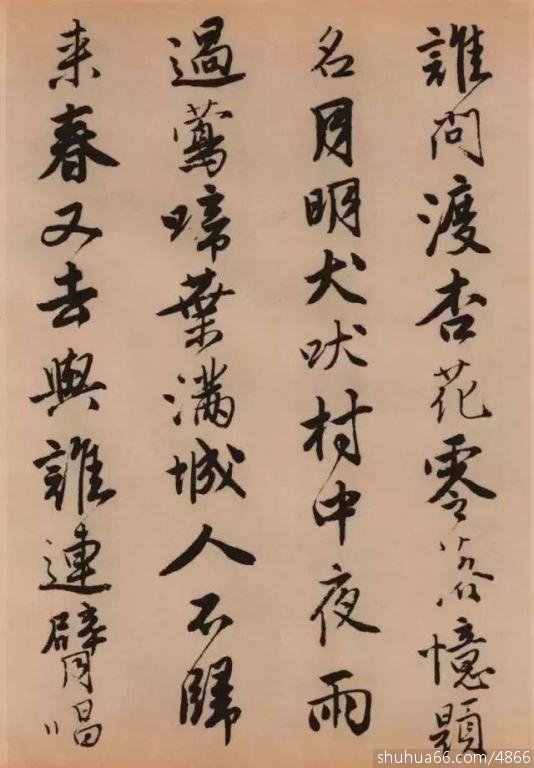 誰問渡杏花零落憶題
名月明犬吠村中夜雨
過鶯啼葉滿城人不歸
来春又去與誰連臂唱
shuhua66.com/4866